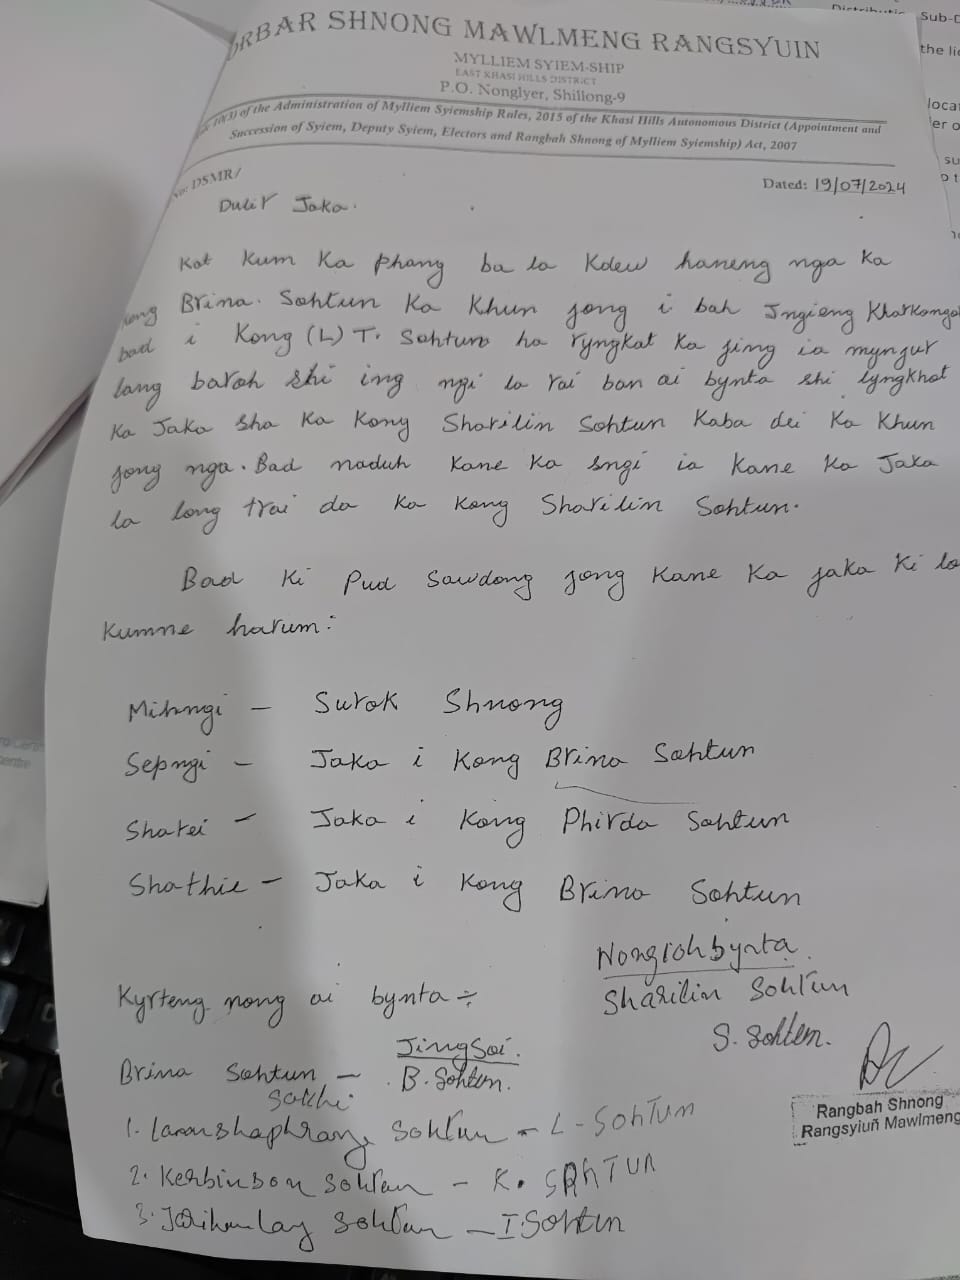 DORBAR SHNONG MAWLMENG RANGSYUIN
MYLLIEM SYIEM-SHIP
EAST KHASI HILLS DISTRICT
P.O. Nonglyer, Shillong-9
10(3) of the Administration of Mylliem Syiemship Rules, 2015 of the Khasi Hills Autonomous District (Appointment and
Succession of Syiem, Deputy Syiem, Electors and Rangbah Shnong of Mylliem Syiemship) Act, 2007
No: DSMR/
Dated: 19/07/2024
Dulir Jaka.
Kat kum ka phang ba la kdew haneng nga ka
kong Brina. Sohtun ka khun jong i bah Ingieng Kharkongor
bad i Kong (L) T. Sohtun ha ryngkat ka jing ia myngur
lang baroh shi ing ngi la rai ban ai bynta shi lyngkhot
ka Jaka sha ka Kong Sharilin Sohtun kaba dei ka khun
jong nga. Bad naduh kane ka sngi ia kane ka Jaka
la long trai da ka kong Sharilin Sohtun.
Bad ki pud sawdong jong kane ka jaka ki lo
kumne harum:
Mihngi - Surok Shnong
Sepngi - Jaka i Kong Brina Sohtun
Shatei - Jaka i Kong Phirda Sohtun
Shathie - Jaka i Kong Brina Sohtun
Nongioh bynta.
Sharilin Sohtun
S. Sohtun.
Kyrteng nong ai bynta÷
Jingsoi.
Brina Sohtun - B. Sohtun.
Sakhi
1. Lamanshaphrang Sohtun - L - SOHTUN
2. Kerbinson Sohtun - K. SOHTUN
3. Sohtun - I. Sohtun
Rangbah Shnong
Rangsyiuñ Mawlmeng
Sub-D
the lic